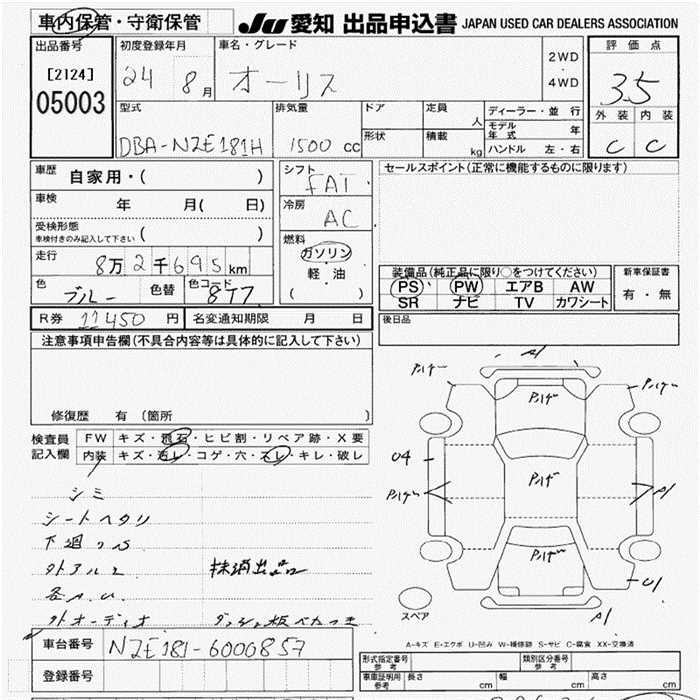 車内保管・守衛保管
JU 愛知 出品申込書 JAPAN USED CAR DEALERS ASSOCIATION
出品番号
[2124]
05003
初度登録年月
24 8月
車名・グレード
オーリス
2WD
・
4WD
評価点
3.5
外装 内装
C C
型式
DBA-NZE181H
排気量
1500 cc
ドア
形状
定員 人
積載 kg
ディーラー・並行
モデル年式 年
ハンドル 左・右
車歴 自家用・( )
車検 年 月( 日)
受検形態
車検付きのみ記入して下さい ( )
走行 8万2千695km
色 ブルー 色替 色コード 8T7
シフト
FAT
冷房
AC
燃料
ガソリン
軽油
( )
セールスポイント(正常に機能するものに限ります)
装備品(純正品に限り○をつけてください)
PS PW エアB AW
SR ナビ TV カワシート
新車保証書
有・無
R券 11450円 名変通知期限 月 日
後日品
注意事項申告欄(不具合内容等は具体的に記入して下さい)
修復歴 有(箇所 )
検査員
記入欄
FW キズ・飛石・ヒビ割・リペア跡・X要
内装 キズ・汚レ・コゲ・穴・スレ・キレ・破レ
シミ
シートヘタリ
下廻りS
外アルミ 抹消出品
各A.U.
外オーディオ ダッシュ板ベタつき
A1
P.ハゲ
P.ハゲ
P.ハゲ
U4
P.ハゲ
P.ハゲ
A1
P.ハゲ
U1
A1
スペア
A-キズ E-エクボ U-凹み W-補修跡 S-サビ C-腐食 XX-交換済
車台番号 NZE181-6000857
登録番号
形式指定番号 参考
類別区分番号 参考
車庫証明用 参考 長さ cm 幅 cm 高さ cm